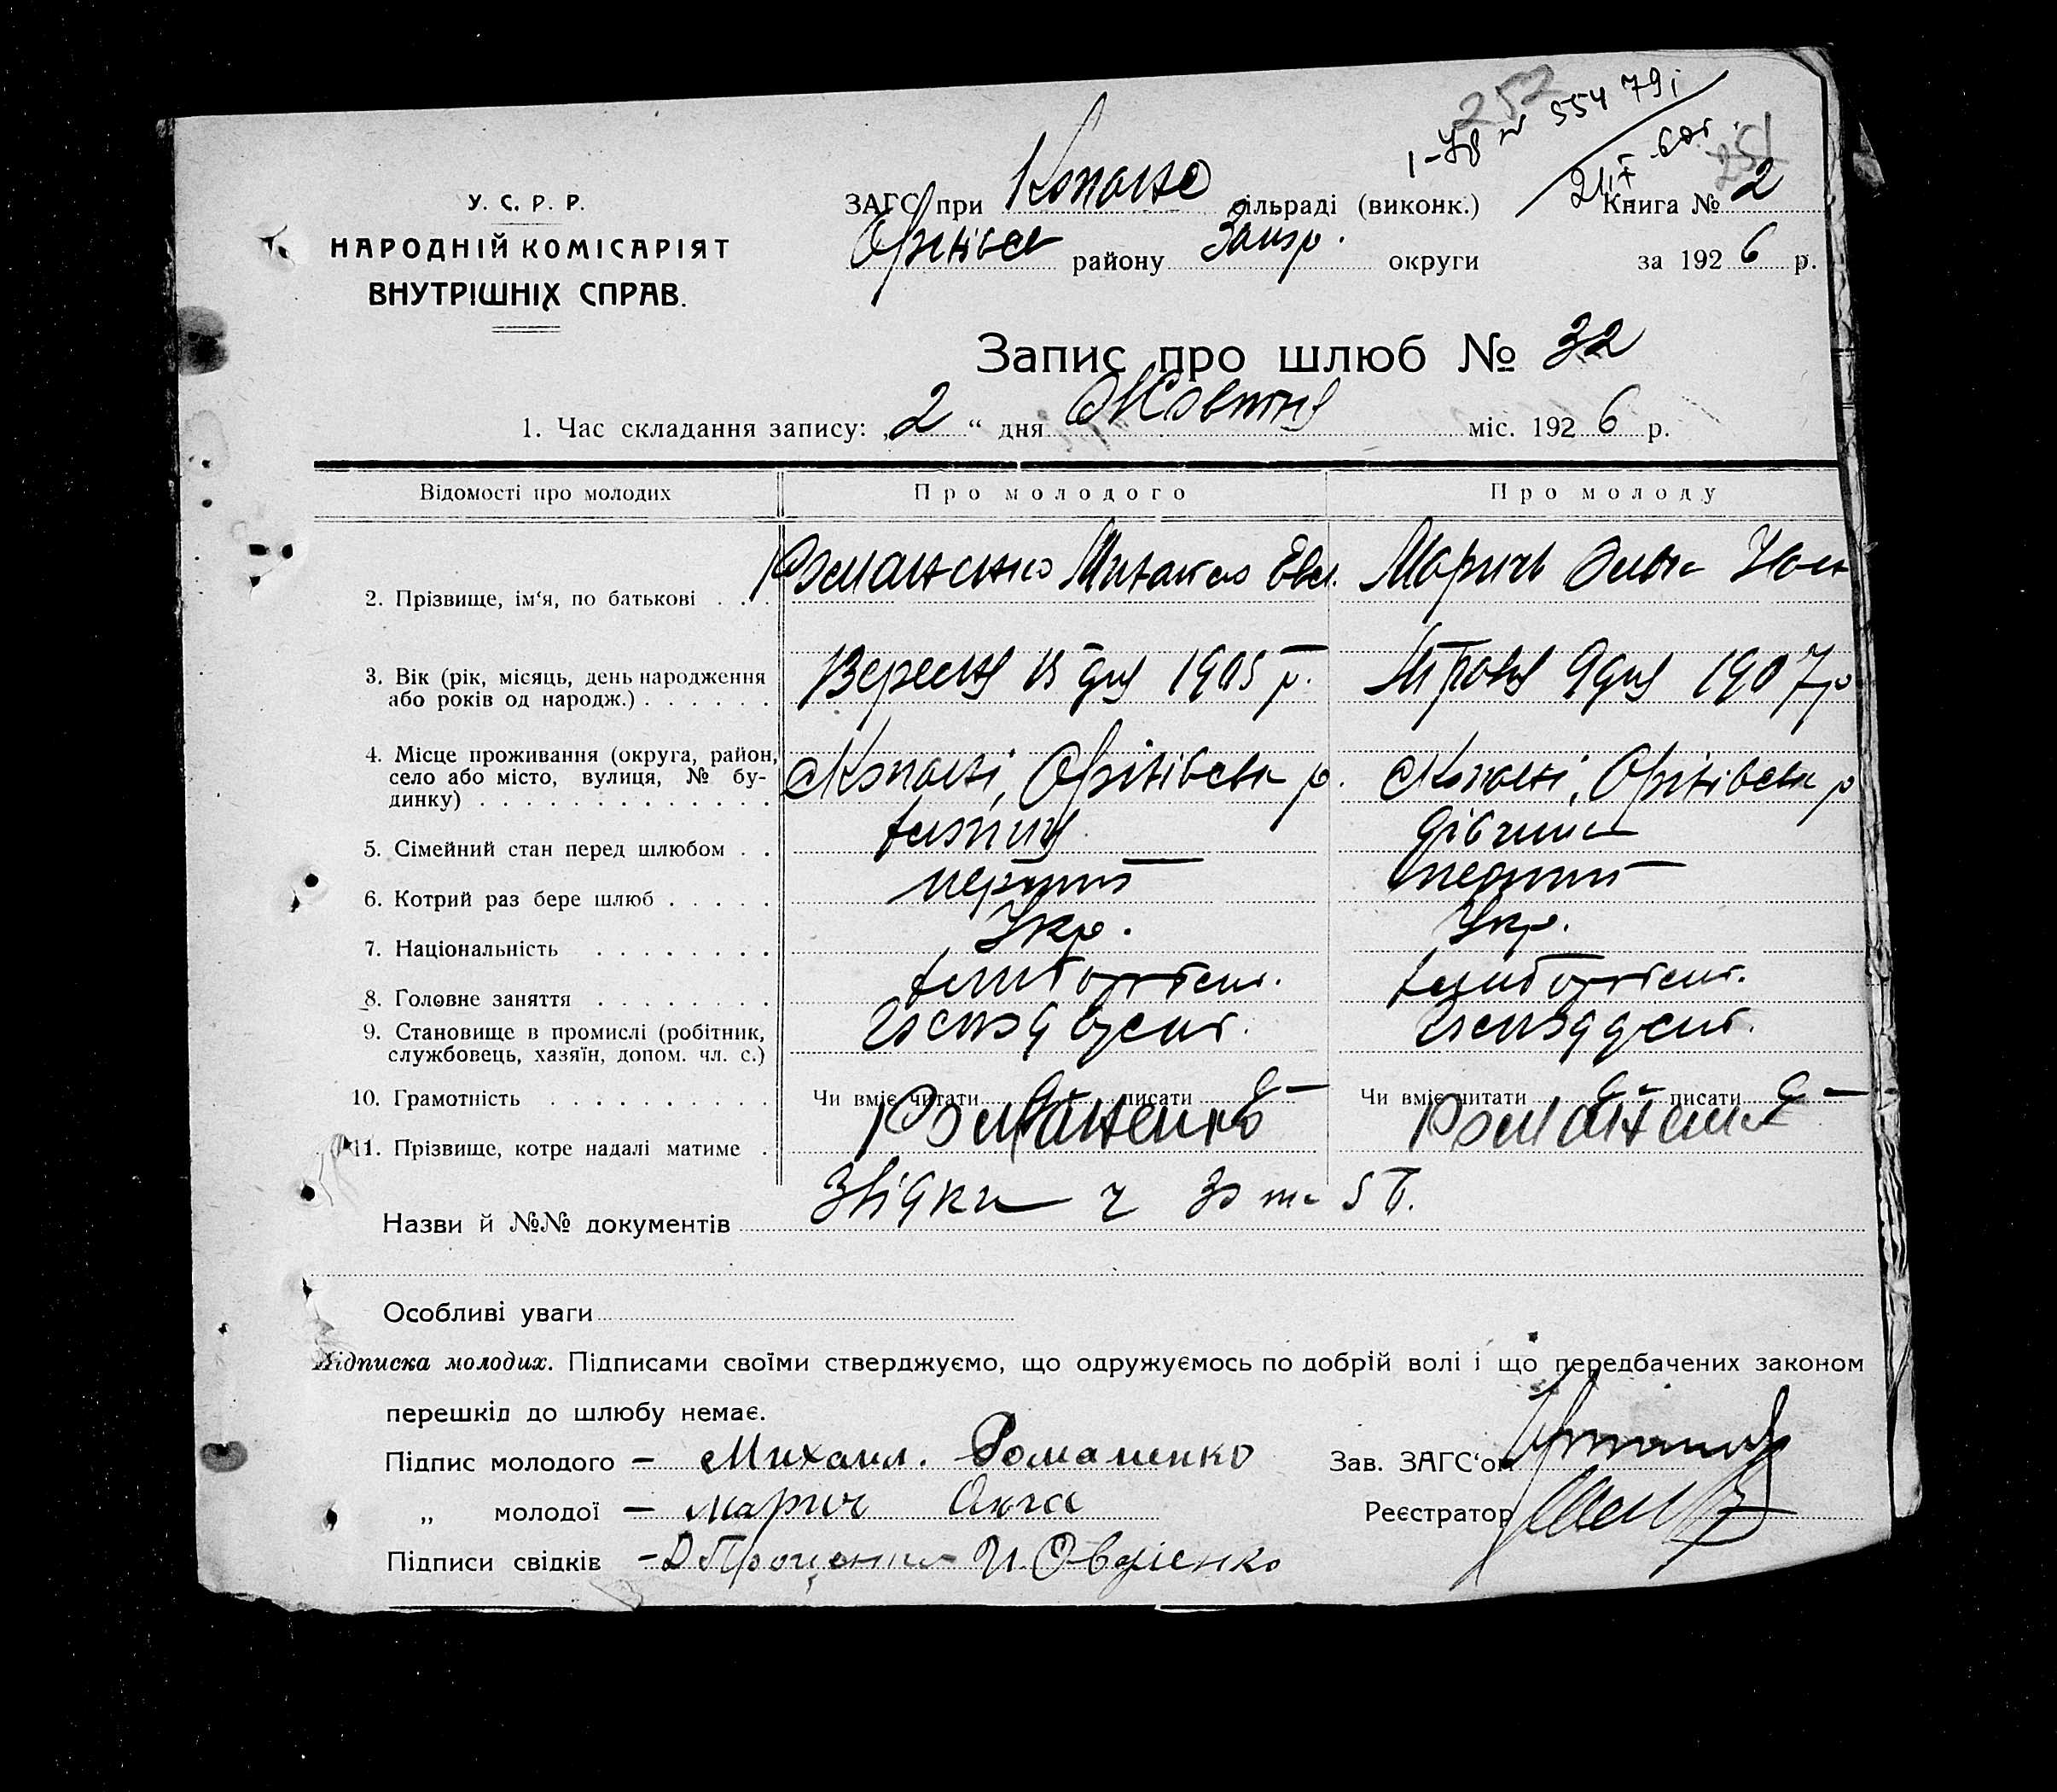 252
1-ЖЯ № 554791
251
У. С. Р. Р.
НАРОДНІЙ КОМІСАРІЯТ
ВНУТРІШНІХ СПРАВ.
ЗАГС при сільраді (виконк.) Книга № 2
району Запор. округи за 1926 р.
Запис про шлюб № 32
1. Час складання запису: „2“ дня Жовтня міс. 1926 р.
Відомості про молодих Про молодого Про молоду
2. Прізвище, ім‘я, по батькові . . . Романенко Михайло Евд. Марич Ольга Іван
3. Вік (рік, місяць, день народження або років од народж.) . . . . . . Вересня 15 дня 1905 р. Травня 9 дня 1907 р
4. Місце проживання (округа, район, село або місто, вулиця, № будинку) . . . . . . . . . . . . . Копані, Оріхівськ р. Копані, Оріхівськ р
5. Сімейний стан перед шлюбом . . дівчина
6. Котрий раз бере шлюб . . . . . перший перший
7. Національність . . . . . . . . Укр. Укр.
8. Головне заняття . . . . . . . .
9. Становище в промислі (робітник, службовець, хазяїн, допом. чл. с.)
10. Грамотність . . . . . . . . . . Чи вміє читати писати Чи вміє читати писати
11. Прізвище, котре надалі матиме . Романенко Романенко
Назви й №№ документів Звідки ч 30 та 57.
Особливі уваги
Підписка молодих. Підписами своїми стверджуємо, що одружуємось по добрій волі і що передбачених законом
перешкід до шлюбу немає.
Підпис молодого – Михаил. Романенко Зав. ЗАГС‘ом
„ молодої – Марич Ольга Реєстратор
Підписи свідків – И Овдієнко